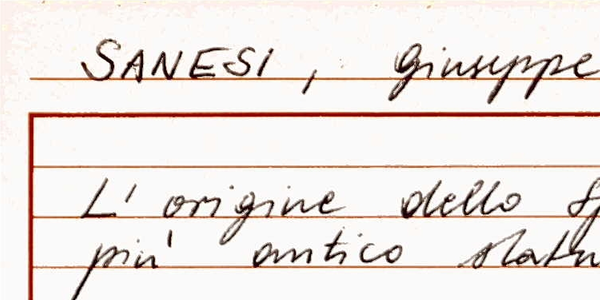 SANESI, Giuseppe
L'origine dello Sp
più antico statu